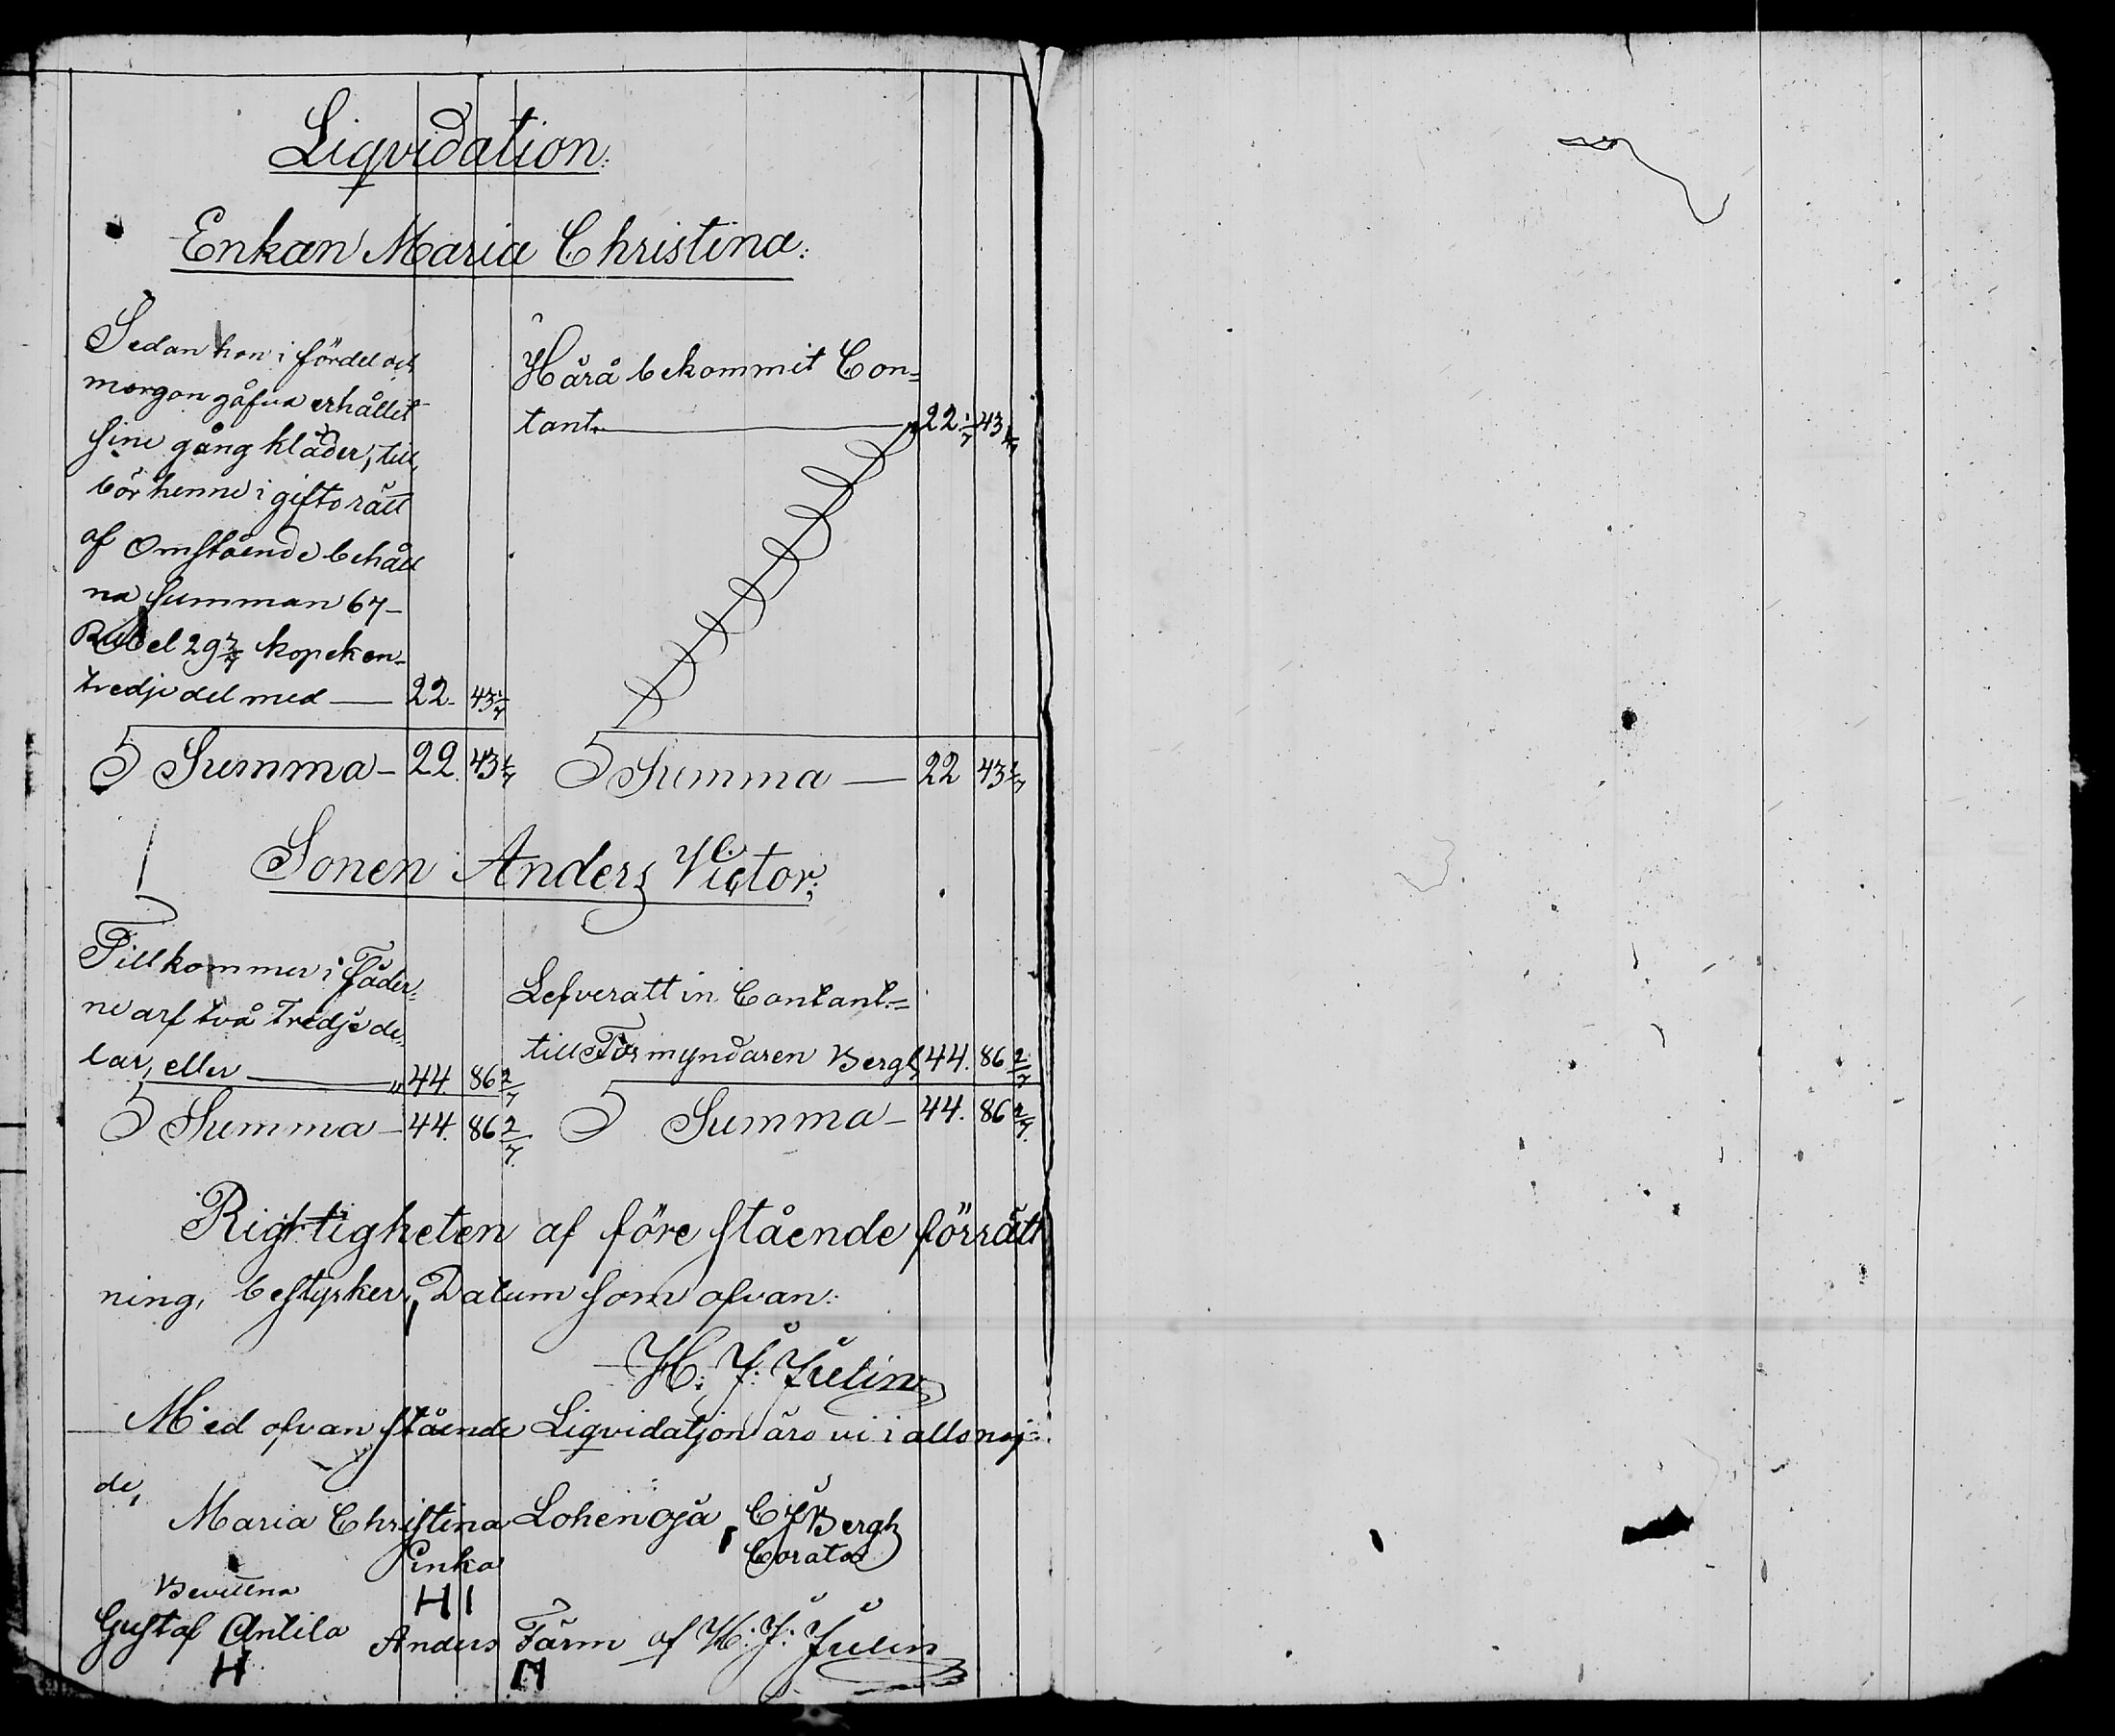 Liqvidation:
Enkan Maria Christina:
Sedan hon i fördel och
morgongåfva erhållit
sine gång kläder, till,
bör henne i giftorätt
af Omstående behåll
na summan 67-
Rubel 29 3/7 kopeken-
tredjedel med — 22. 43 1/7
Summa — 22. 43 1/7
Härå bekommit Con=
tant — 22 43 1/7
Summa — 22 43 1/7
Sonen Anders Victor;
Tillkommer i Fäder=
ne arf två tredjede-
lar, eller — " 44. 86 2/7
Summa — 44. 86 2/7
Lefveratt in Contant=
till Förmyndaren Bergh 44. 86 2/7
Summa — 44. 86 2/7
Rigtigheten af förestående förrätt
ning, bestyrker, Datum som ofvan:
H: J: Julin
Med ofvanstående Liqvidatjon äro vi i allo nöj=
de,
Maria Christina Lohenoja, C J Bergh
Enka Corator
Bevittna HI
Gustaf Antila Anders Färm af H: J: Julin
H M